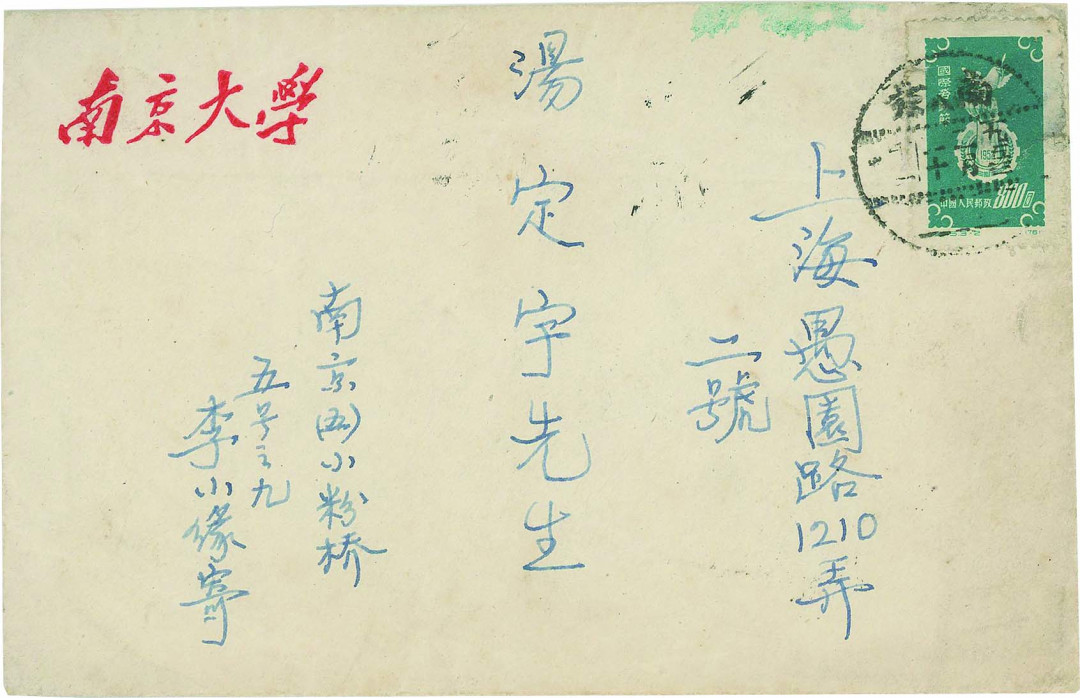 上海愚園路1210弄
二號
湯定宇先生
南京(五)小粉桥
五号之九
李小缘寄
南京大學
中國人民郵政
800圓